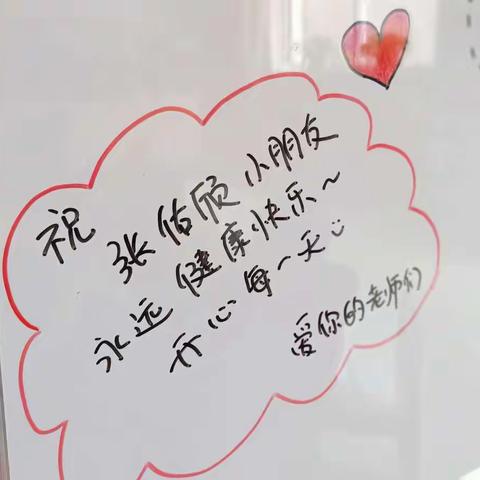 祝
张佑颀小朋友
永远健康快乐~
开心每一天
爱你的老师们